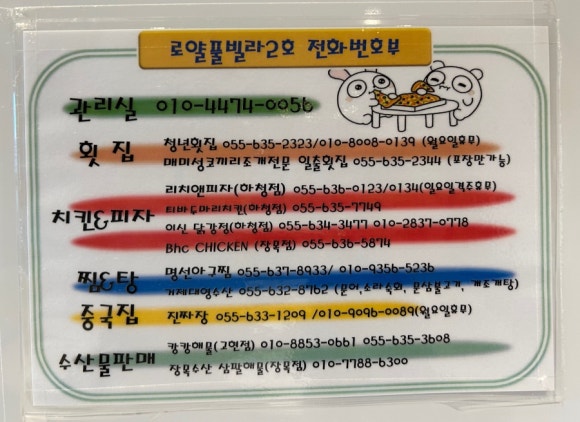 로얄풀빌라2호 전화번호부
관리실 010-4474-0056
횟 집
청년횟집 055-635-2323/010-8008-0139 (월요일휴무)
매미성코끼리조개전문 일출횟집 055-635-2344 (포장만가능)
치킨&피자
리치앤피자(하청점) 055-636-0123/0134(일요일격주휴무)
티바두마리치킨(하청점) 055-635-7749
이신 닭강정(하청점) 055-634-3477 010-2837-0778
Bhc CHICKEN (장목점) 055-636-5874
찜&탕
명선아구찜 055-637-8933/ 010-9356-5236
거제대영수산 055-632-8762 (문어,소라숙회, 문삼불고기, 개조개탕)
중국집
진짜장 055-633-1209 /010-9096-0089(월요일휴무)
수산물판매
캉캉해물(고현점) 010-8853-0661 055-635-3608
장목수산 삼팔해물(장목점) 010-7788-6300